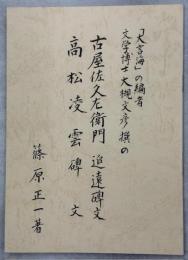 「大言海」の編者
文学博士大槻文彦撰の
古屋佐久左衛門 追遠碑文
高松凌雲碑文
篠原正一著